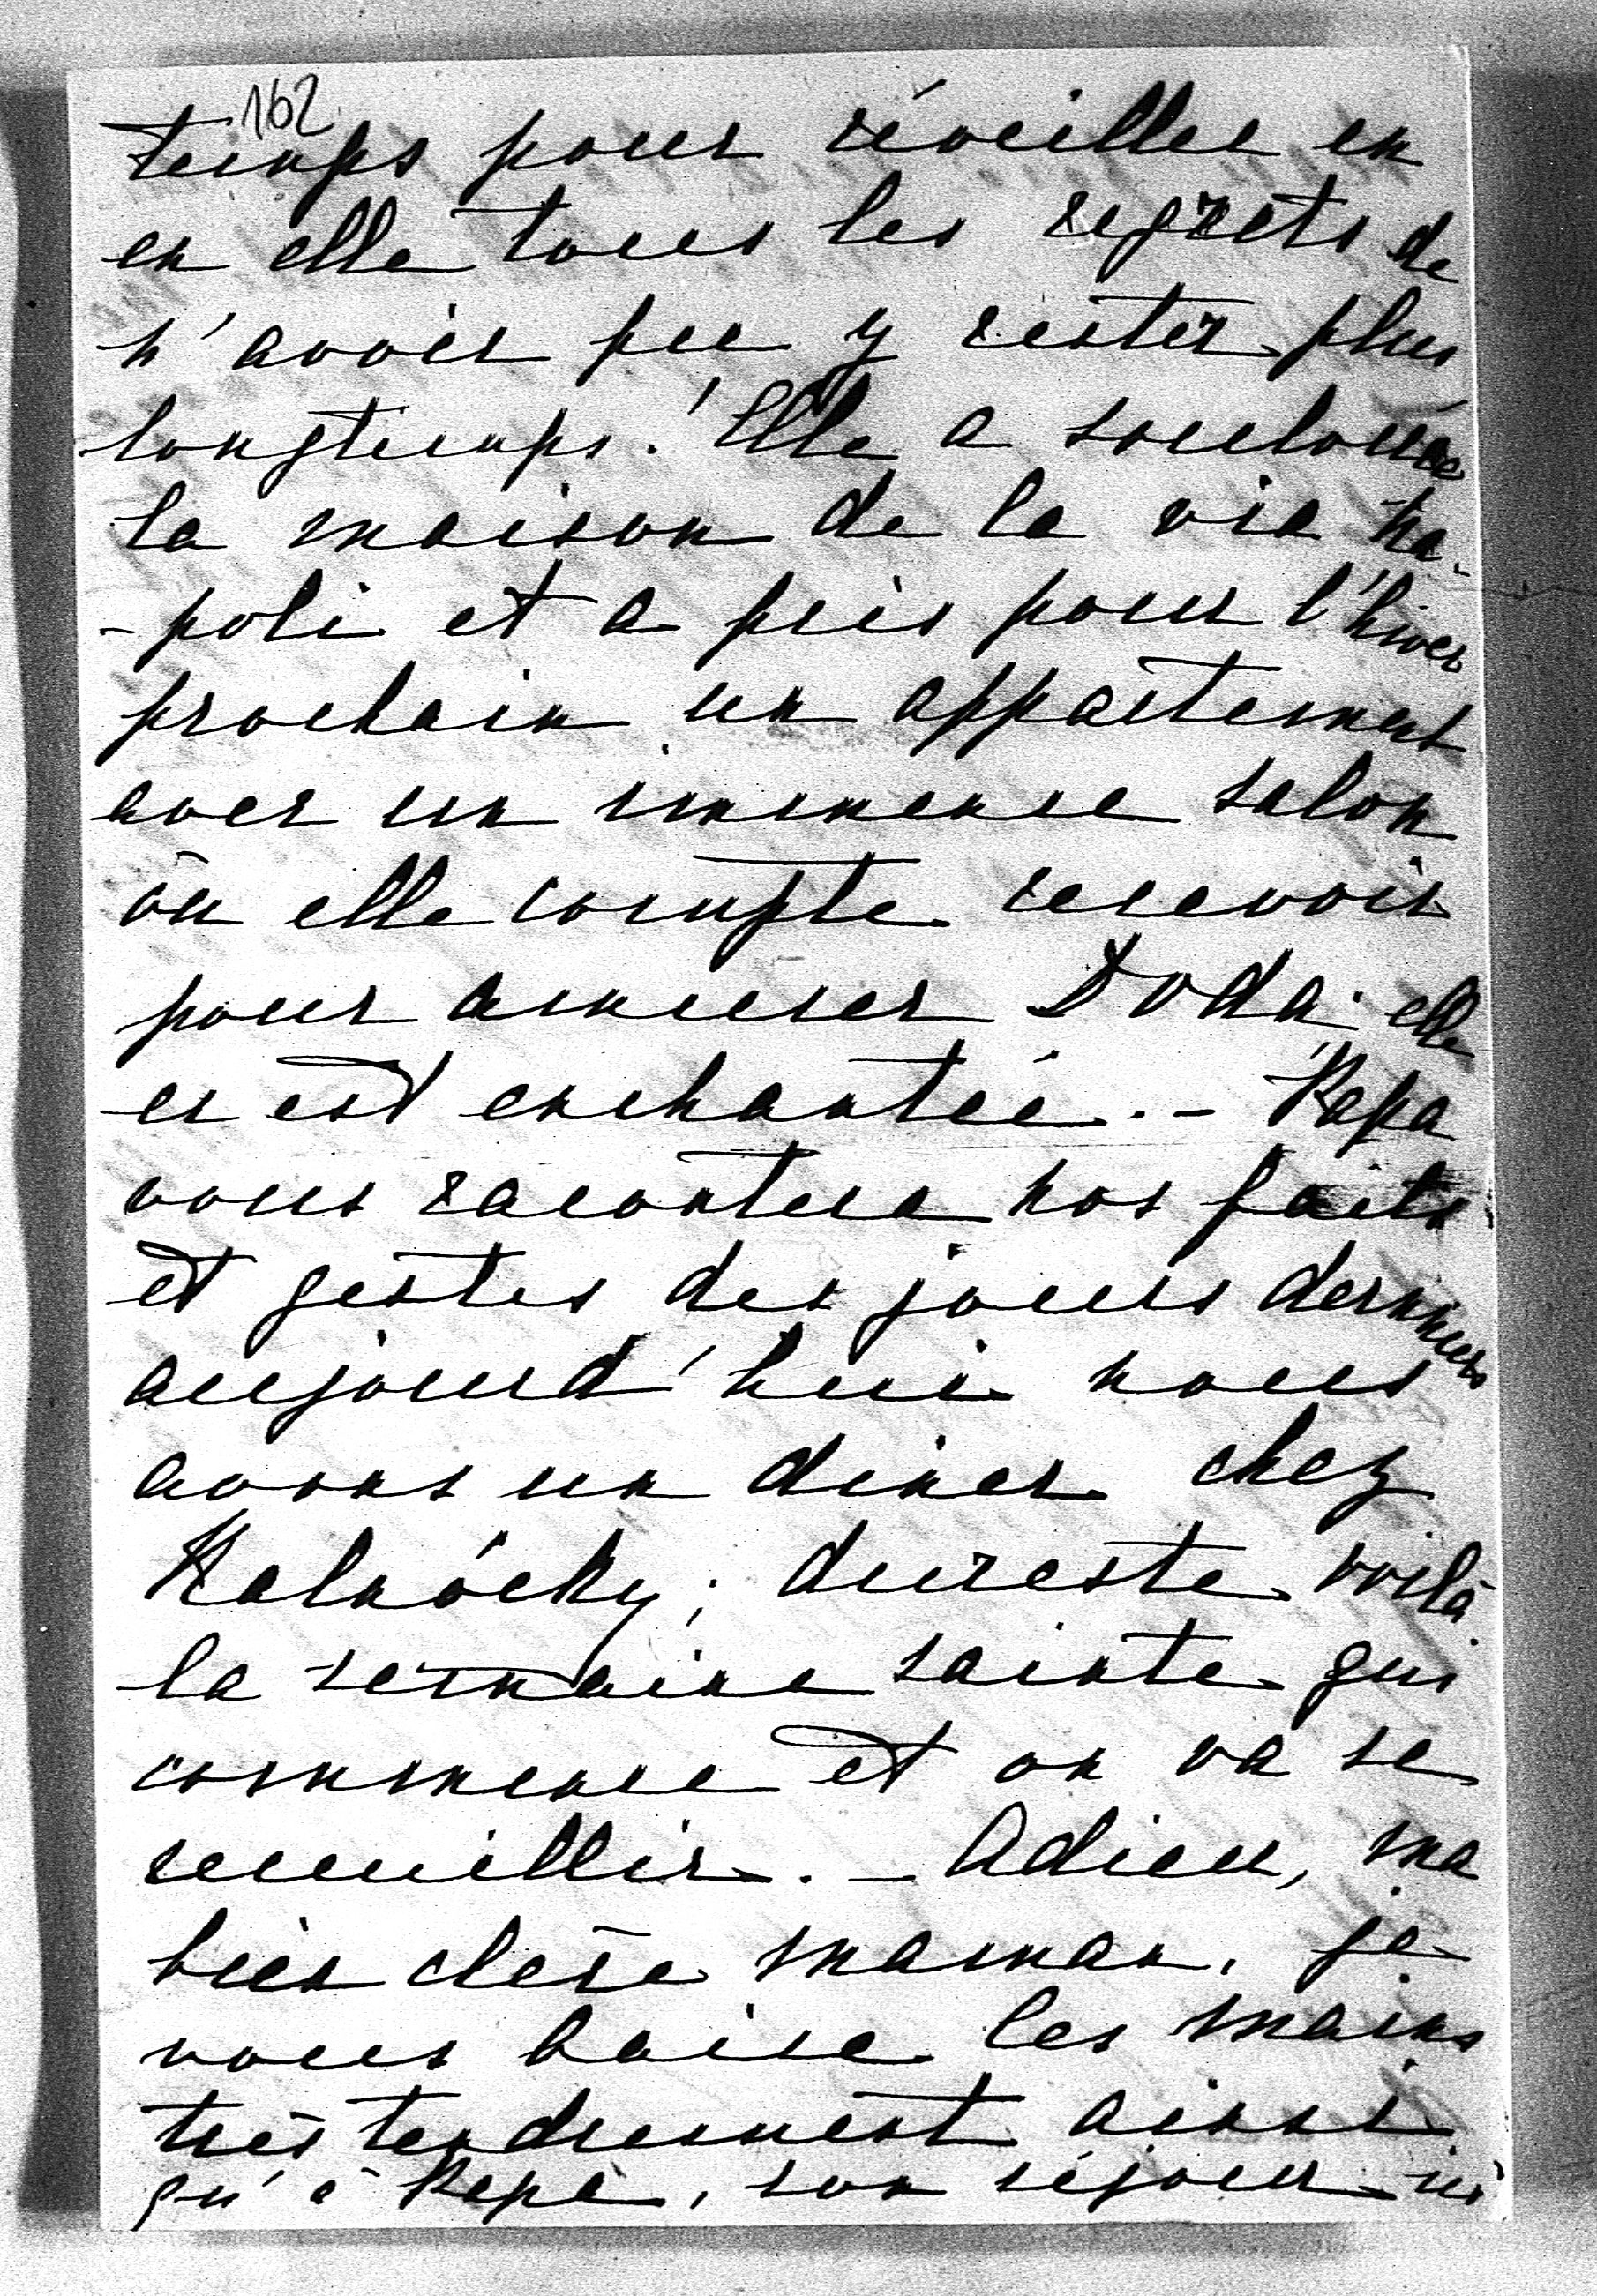 162
temps pour réveiller en
en elle tous les regrets de
n'avoir pu y rester plus
longtemps. Elle a souloué
la maison de la via Na-
-poli et a pris pour l'hiver
prochain un appartement
avec un immense salon
où elle compte recevoir
pour amuser Doda; elle
en est enchantée. - Papa
vous racontera nos faits
et gestes des jours derniers
aujourd'hui nous
avons un diner chez
Kalnócky; dureste voilà
la semaine sainte qui
commence et on va se
recueillir. - Adieu, ma
bien chère maman, je
vous baise les mains
très tendrement ainsi
qu'à Papa, son séjour ici